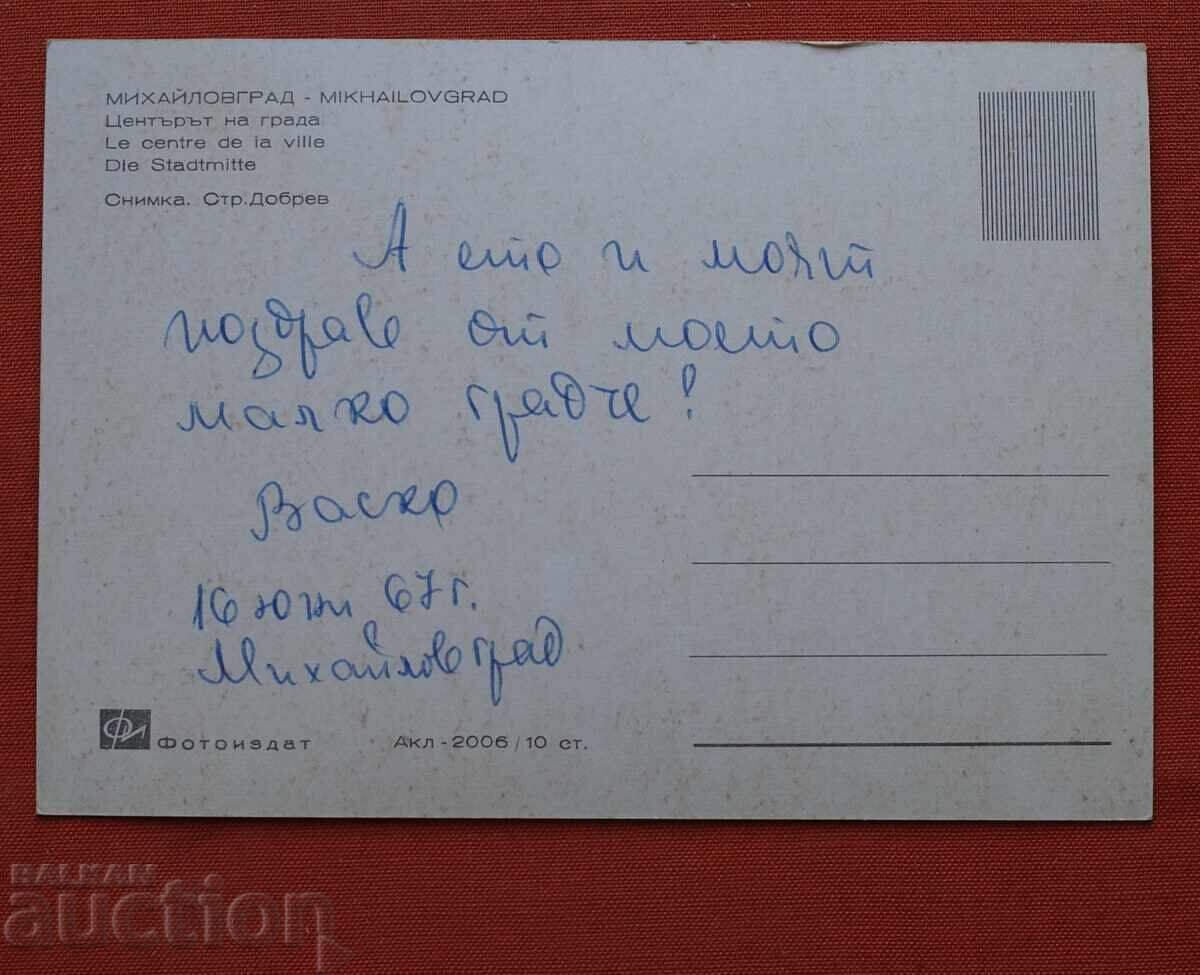 МИХАЙЛОВГРАД - MIKHAILOVGRAD
Центърът на града
Le centre de la ville
Die Stadtmitte
Снимка. Стр. Добрев
А ето и моят
поздрав от моето
малко градче!
Васко
16 юни 67 г.
Михайловград
Фотоиздат Акл-2006/10 ст.
BALKAN
auction